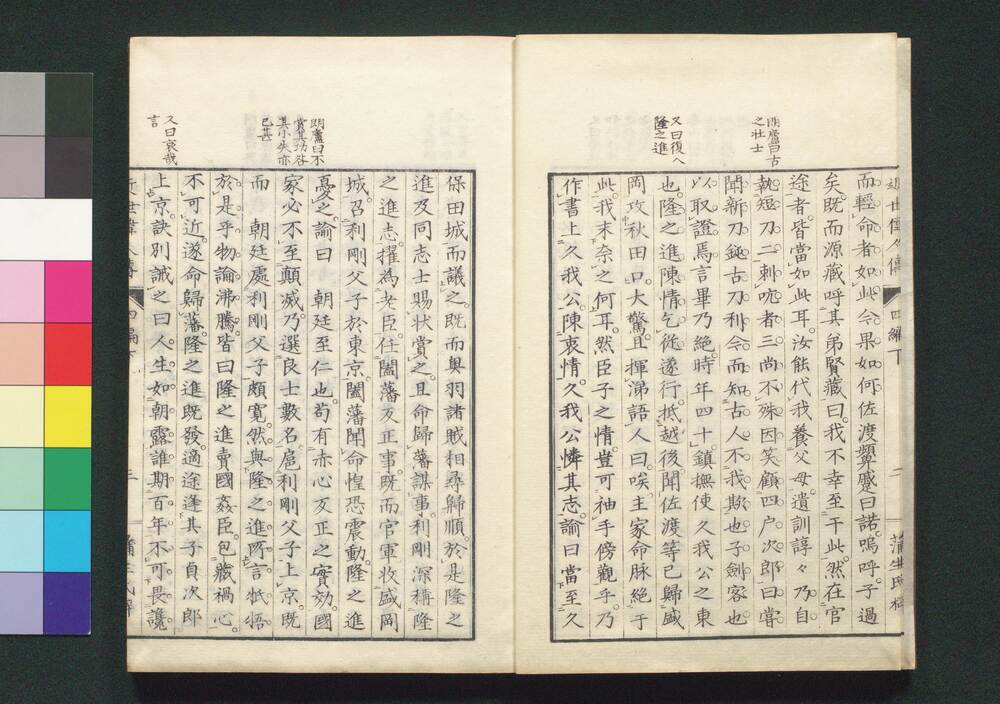 隆廬曰古
之壮士
又曰復入
隆之進
近世偉人傳
四編下
二
蒲生氏
而輕命者如此今果如何佐渡顰蹙曰諾嗚呼子過
矣既而源藏呼其弟賢藏曰我不幸至于此然在官
途者皆當如此耳汝能代我養父母遺訓諄々乃自
執短刀二刺吭者三尚不殊因笑顧四戸次郎曰嘗
聞新刀鈍古刀利今而知古人不我欺也子劍客也
以取證焉言畢乃絶時年四十鎮撫使久我公之東
也隆之進陳情乞從遂行抵越後聞佐渡等已歸盛
岡攻秋田口大驚且揮涕語人曰唉主家命脉絶于
此我末奈之何耳然臣子之情豈可袖手傍觀乎乃
作書上久我公陳哀情久我公憐其志諭曰當至久
朗廬曰不
賞其功咎
其小失亦
已甚
又曰哀哉
言
保田城而議之既而奥羽諸賊相尋歸順於是隆之
進及同志士賜状賞之且命歸藩謀事利剛深稱隆
之進志擢為老臣任闔藩反正事既而官軍收盛岡
城召利剛父子於東京闔藩聞命惶恐震動隆之進
憂之諭曰 朝廷至仁也苟有赤心反正之實効國
家必不至顛滅乃選良士數名扈利剛父子上京既
而 朝廷處利剛父子頗寛然與隆之進所言牴牾
於是乎物論沸騰皆曰隆之進賣國姦臣包藏禍心
不可近遂命歸藩隆之進既發適途逢其子貞次郎
上京訣別誡之曰人生如朝露誰期百年不可畏讒
近世偉人傳
四編下
三
蒲生氏